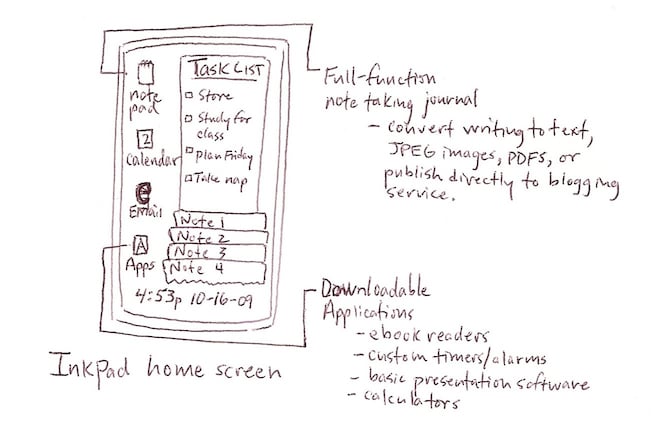 note
pad
2
Calendar
e
Email
A
Apps
TASK LIST
Store
Study for
class
Plan Friday
Take nap
Note 1
Note 2
Note 3
Note 4
4:53p 10-16-09
InkPad home screen
Full-function
note taking journal
- convert writing to text,
JPEG images, PDFs, or
publish directly to blogging
service.
Downloadable
Applications
- ebook readers
- custom timers/alarms
- basic presentation software
- calculators